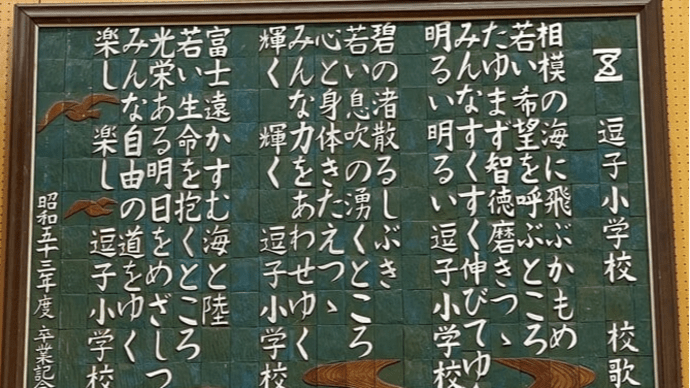 逗子小学校 校歌
相模の海に飛ぶかもめ
若い希望を呼ぶところ
たゆまず智徳磨きつゝ
みんなすくすく伸びてゆ
明るい明るい逗子小学校
碧の渚散るしぶき
若い息吹の湧くところ
心と身体きたえつゝ
みんな力をあわせゆく
輝く 輝く 逗子小学校
富士遠かすむ海と陸
若い生命を抱くところ
光栄ある明日をめざしつ
みんな自由の道をゆく
楽し 楽し 逗子小学校
昭和五十三年度 卒業記念